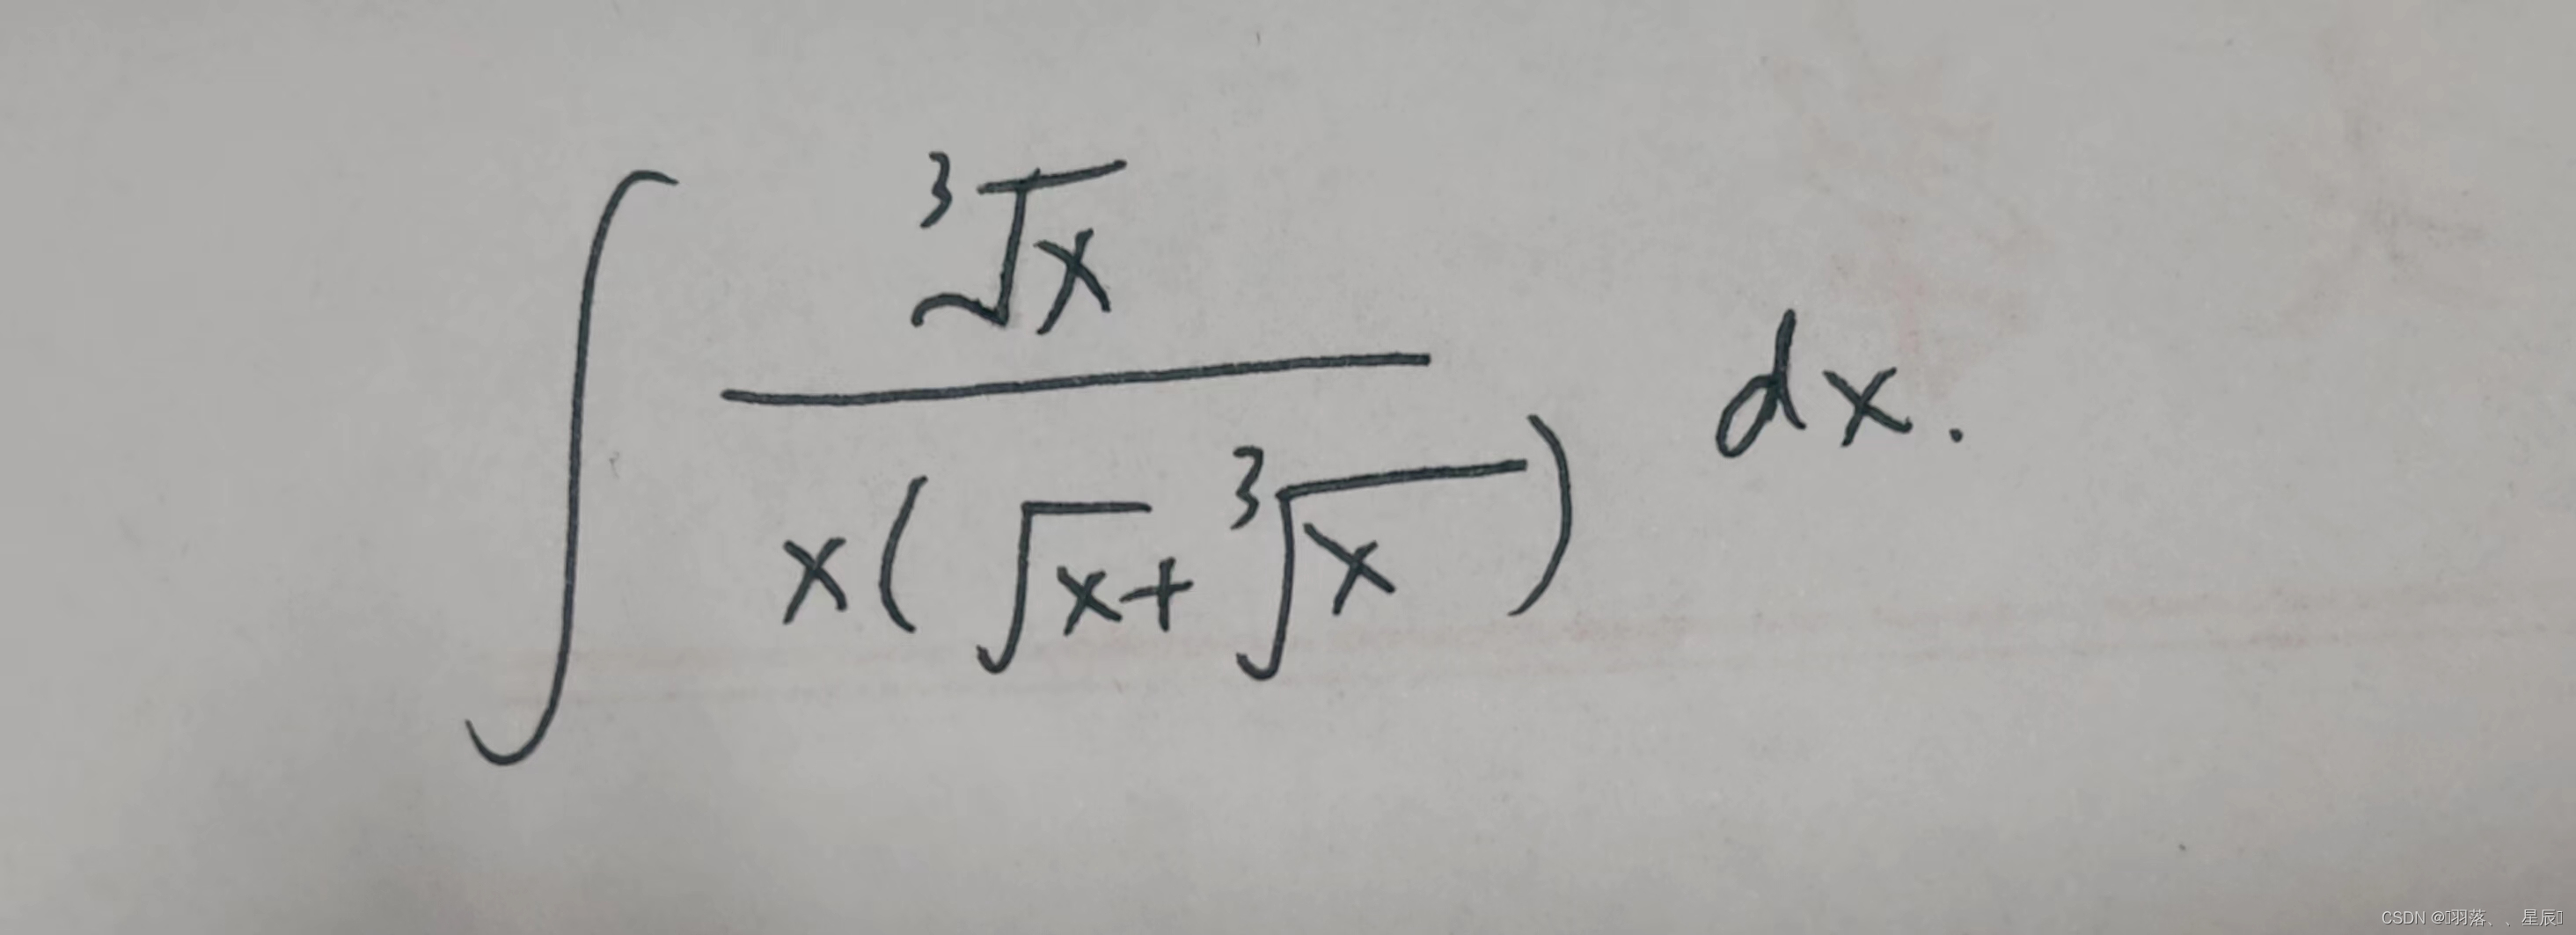 ∫ \frac{\sqrt[3]{x}}{x(\sqrt{x}+\sqrt[3]{x})} dx.
CSDN @羽落、、星辰